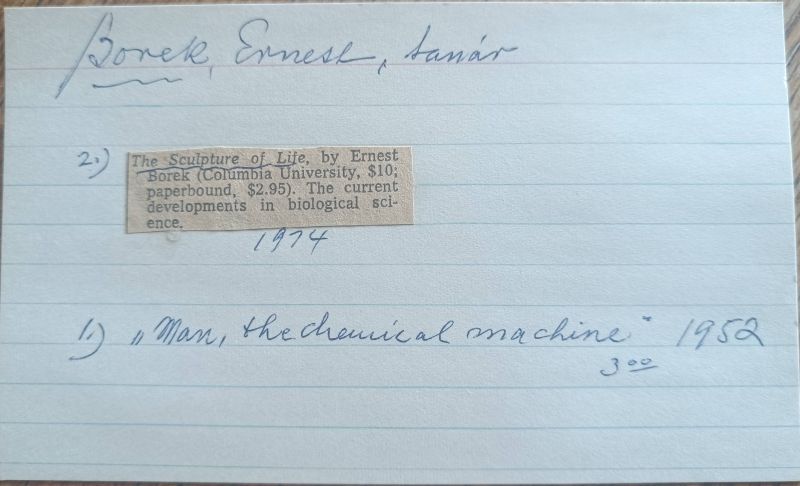 Borek, Ernest, tanár
2.) The Sculpture of Life, by Ernest
Borek (Columbia University, $10;
paperbound, $2.95). The current
developments in biological sci-
ence.
1974
1.) „Man, the chemical machine" 1952
3 00